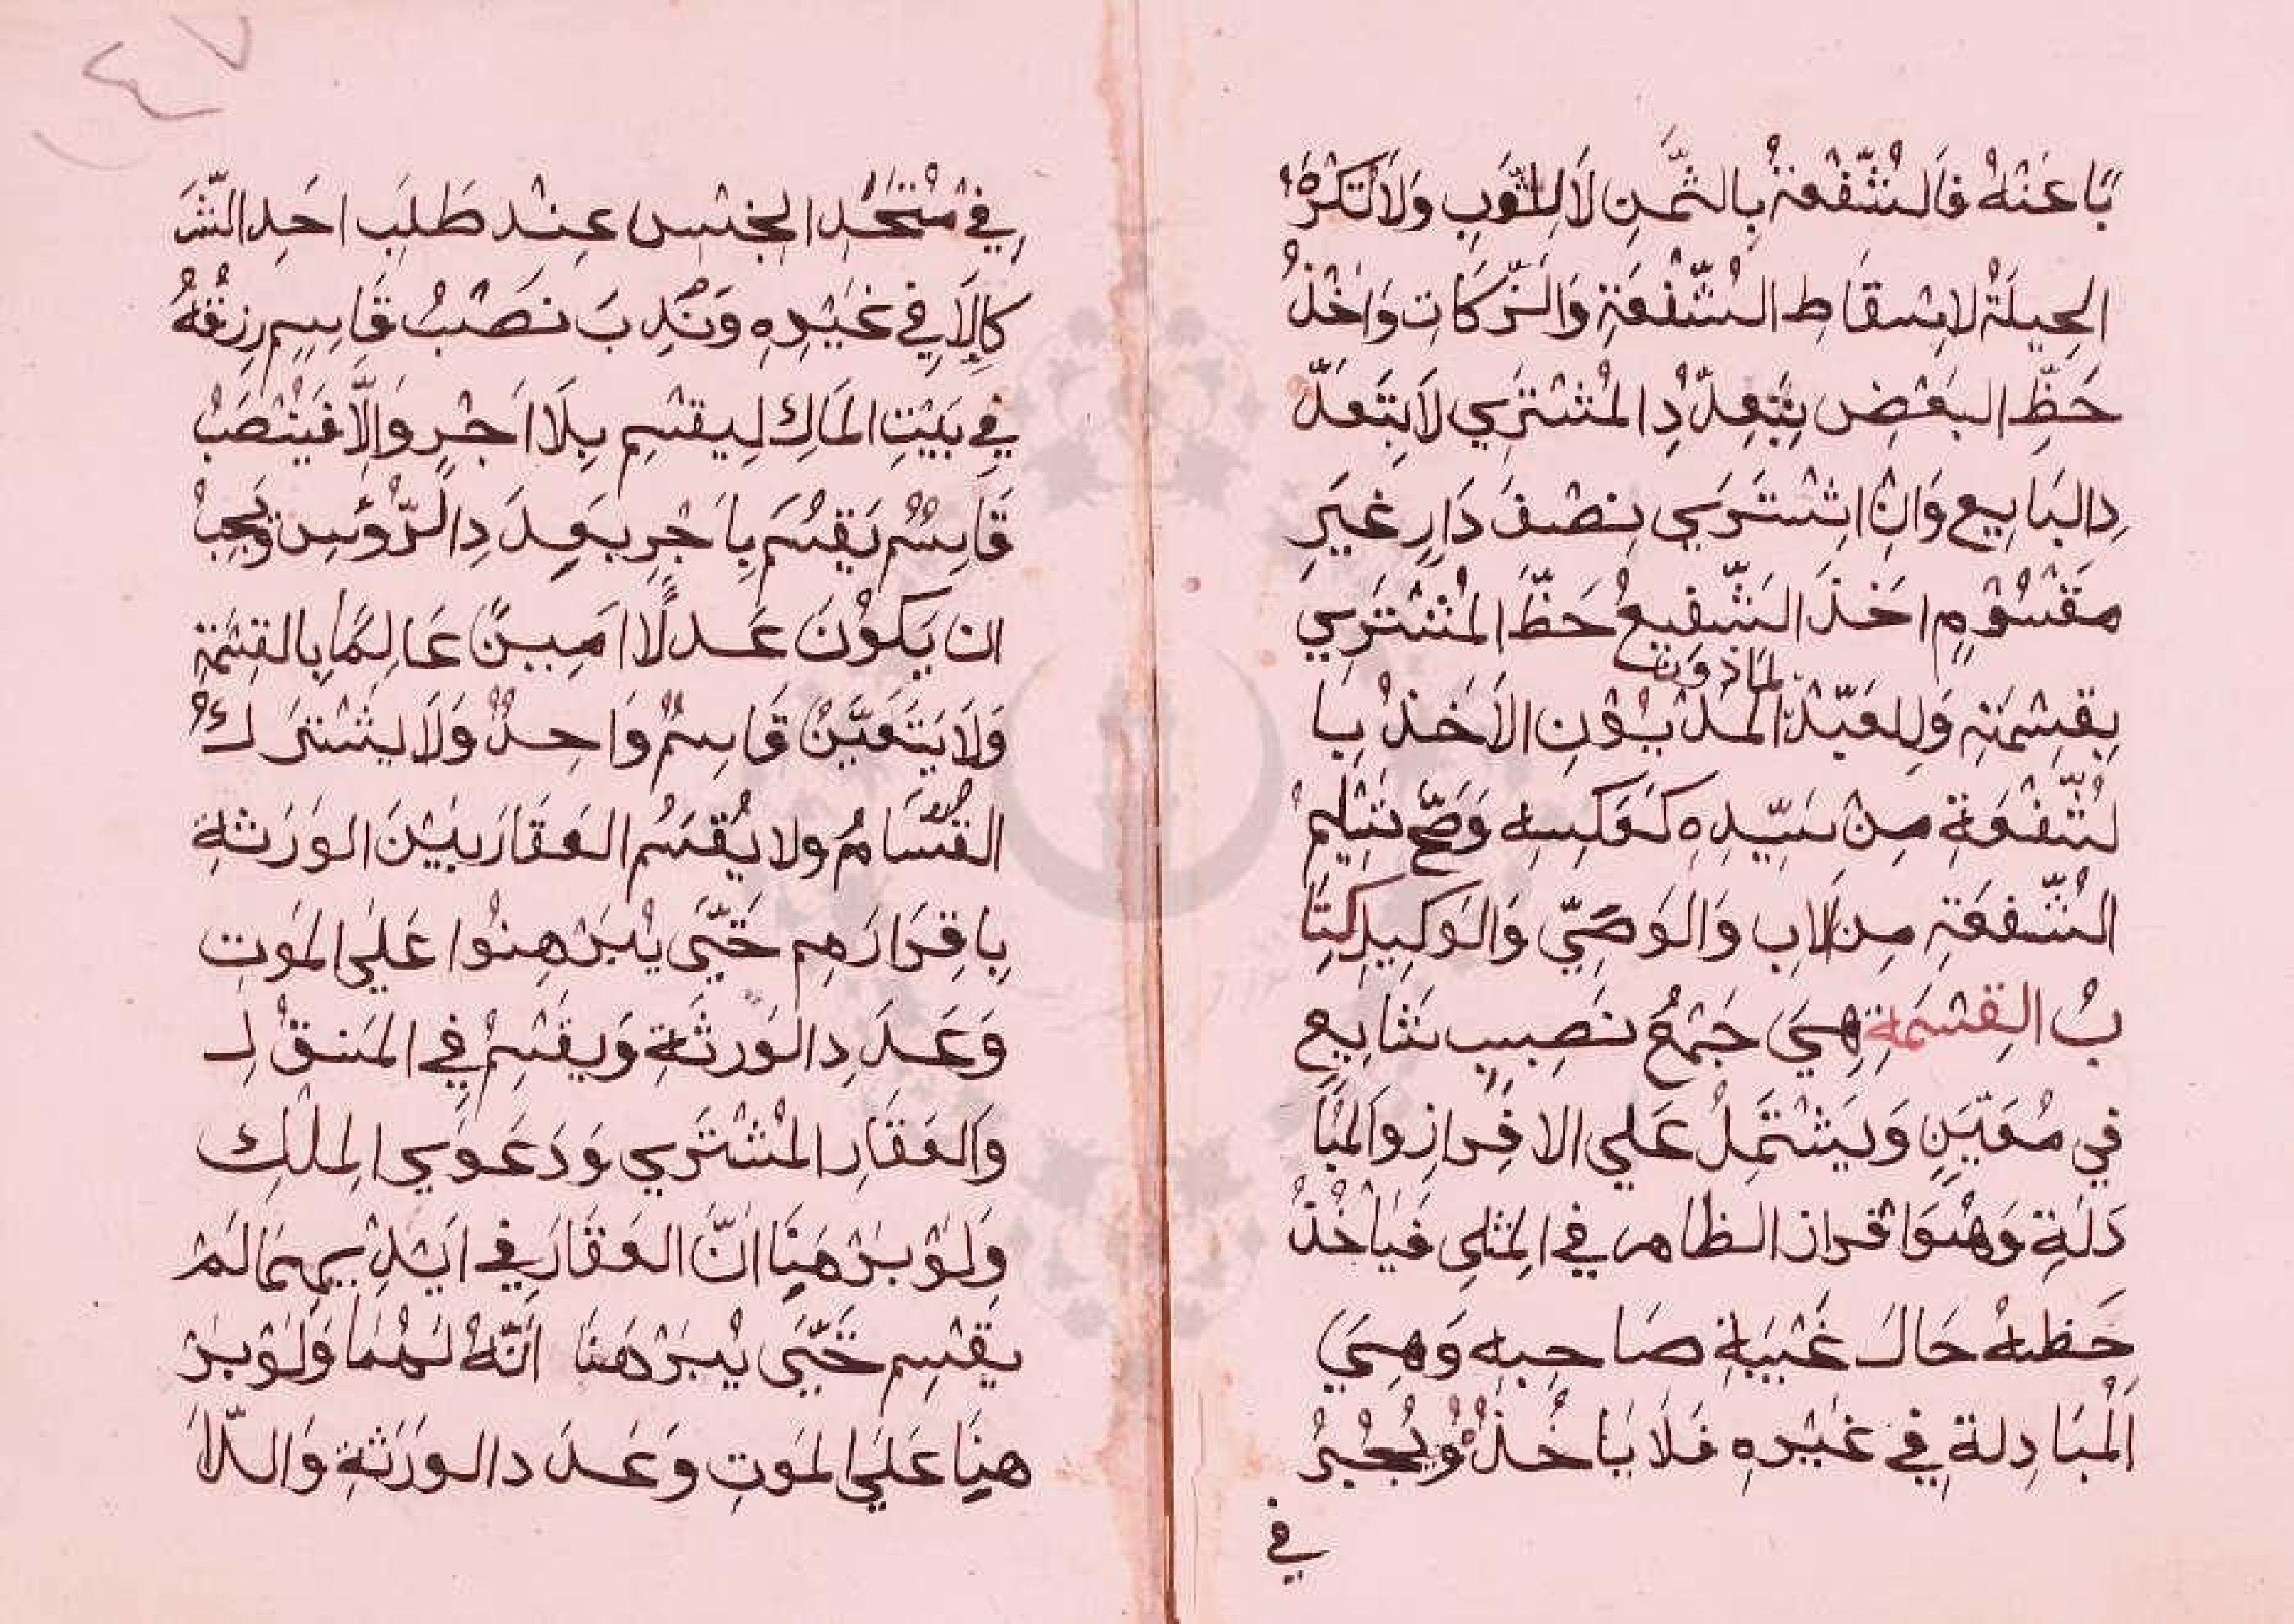 بًا عَنْهُ فَالشُّفْعَةُ بِالثَّمَنِ لَا لِلثَّوبِ وَلَا تُكْرَهُ
الحِيلَةُ لاِسْقَاطِ الشُّفْعَةِ وَالزَّكَاتِ وَاخْذُ
حَظِّ البَعْضِ بِتَعَدُّدِ المُشْتَرِي لَا بِتَعَدُّ
دِ البَايِعِ وَانِ اشْتَرَي نِصْفَ دَارٍ غَيرَ
مَقْسُوْمٍ اخَذَ الشَّفِيعُ حَظَّ المُشْتَرِي
بِقِسْمَتِهِ وَلِلعَبْدِ المَدْيُوْنِ الاَخْذُ بِا
لماذون
لشُّفْعَةِ مِنْ سَيِّدِهِ كَعَكسِه وَصَحَّ تَسْلِيمُ
الشُّفعَةِ مِن الاَبِ وَالوَصِيِّ وَالوَكِيلِ كِتَا
بُ القِسْمَةِ هِيَ جَمْعُ نَصِيبٍ شَايِعٍ
في مُعَيَّنٍ وَيَشْتَمِلُ عَلي الافِرازِ وَالمُبَا
دَلَةِ وَهُوَ افراز الظاهر في المِثلِي فَيَاخُذُ
حَظَهُ حَالَ غَيْبَةِ صَاحِبِهِ وَهِيَ
المُبَادِلة فِي غَيْرِهِ فَلَا يَاخُذُهُ وَيُجْبَرُ
في
فِي مُتَّحَدِ الجِنْسِ عِنْد طَلَبِ احَدِ الشُّرَ
كَا لَا فِي غَيْرِهِ وَنُدِبَ نَصْبُ قَاسِمٍ رِزقُهُ
فِي بَيْتِ المَالِ لِيَقْسِمِ بِلَا اَجْرٍ وَاِلَّا فَيُنْصَبُ
قَاسِمُ يَقْسُمَ بِاَجْرٍ بِعَدَدِ الرُّؤسِ وَيَجِبُ
ان يَكُونَ عَدلًا اَمِيناً عَالِمًا بِالقِسْمَةِ
وَلَا يَتَعَيَّنُ قَاسِمٌ وَاحِدٌ وَلَا يَشْتَرَكُ
القُسَّامُ ولا يُقْسَمُ العَقَارَ بَيْنَ الوَرَثَةِ
بِاقرَارِهِم حَتَّى يُبَرْهِنُوا عَلَى المَوتِ
وَعَدَدِ الوَرثَةِ وَيقْسِمُ فِي المَنقُلِ
وَالعَقَارِ المُشْتَرَي وَدَعوي المِلكِ
وَلَوْ بَرْهَنَا اَنَّ العَقَارَ فِي اَيْدِيهِمَا لَمْ
يَقْسِم حَتَّى يُبَرْهَنا اَنَّهُ لَهُمَا وَلَوْ بَرْ
هنَا عَلَي المَوتِ وَعَدَد الوَرَثَةِ وَالدّا